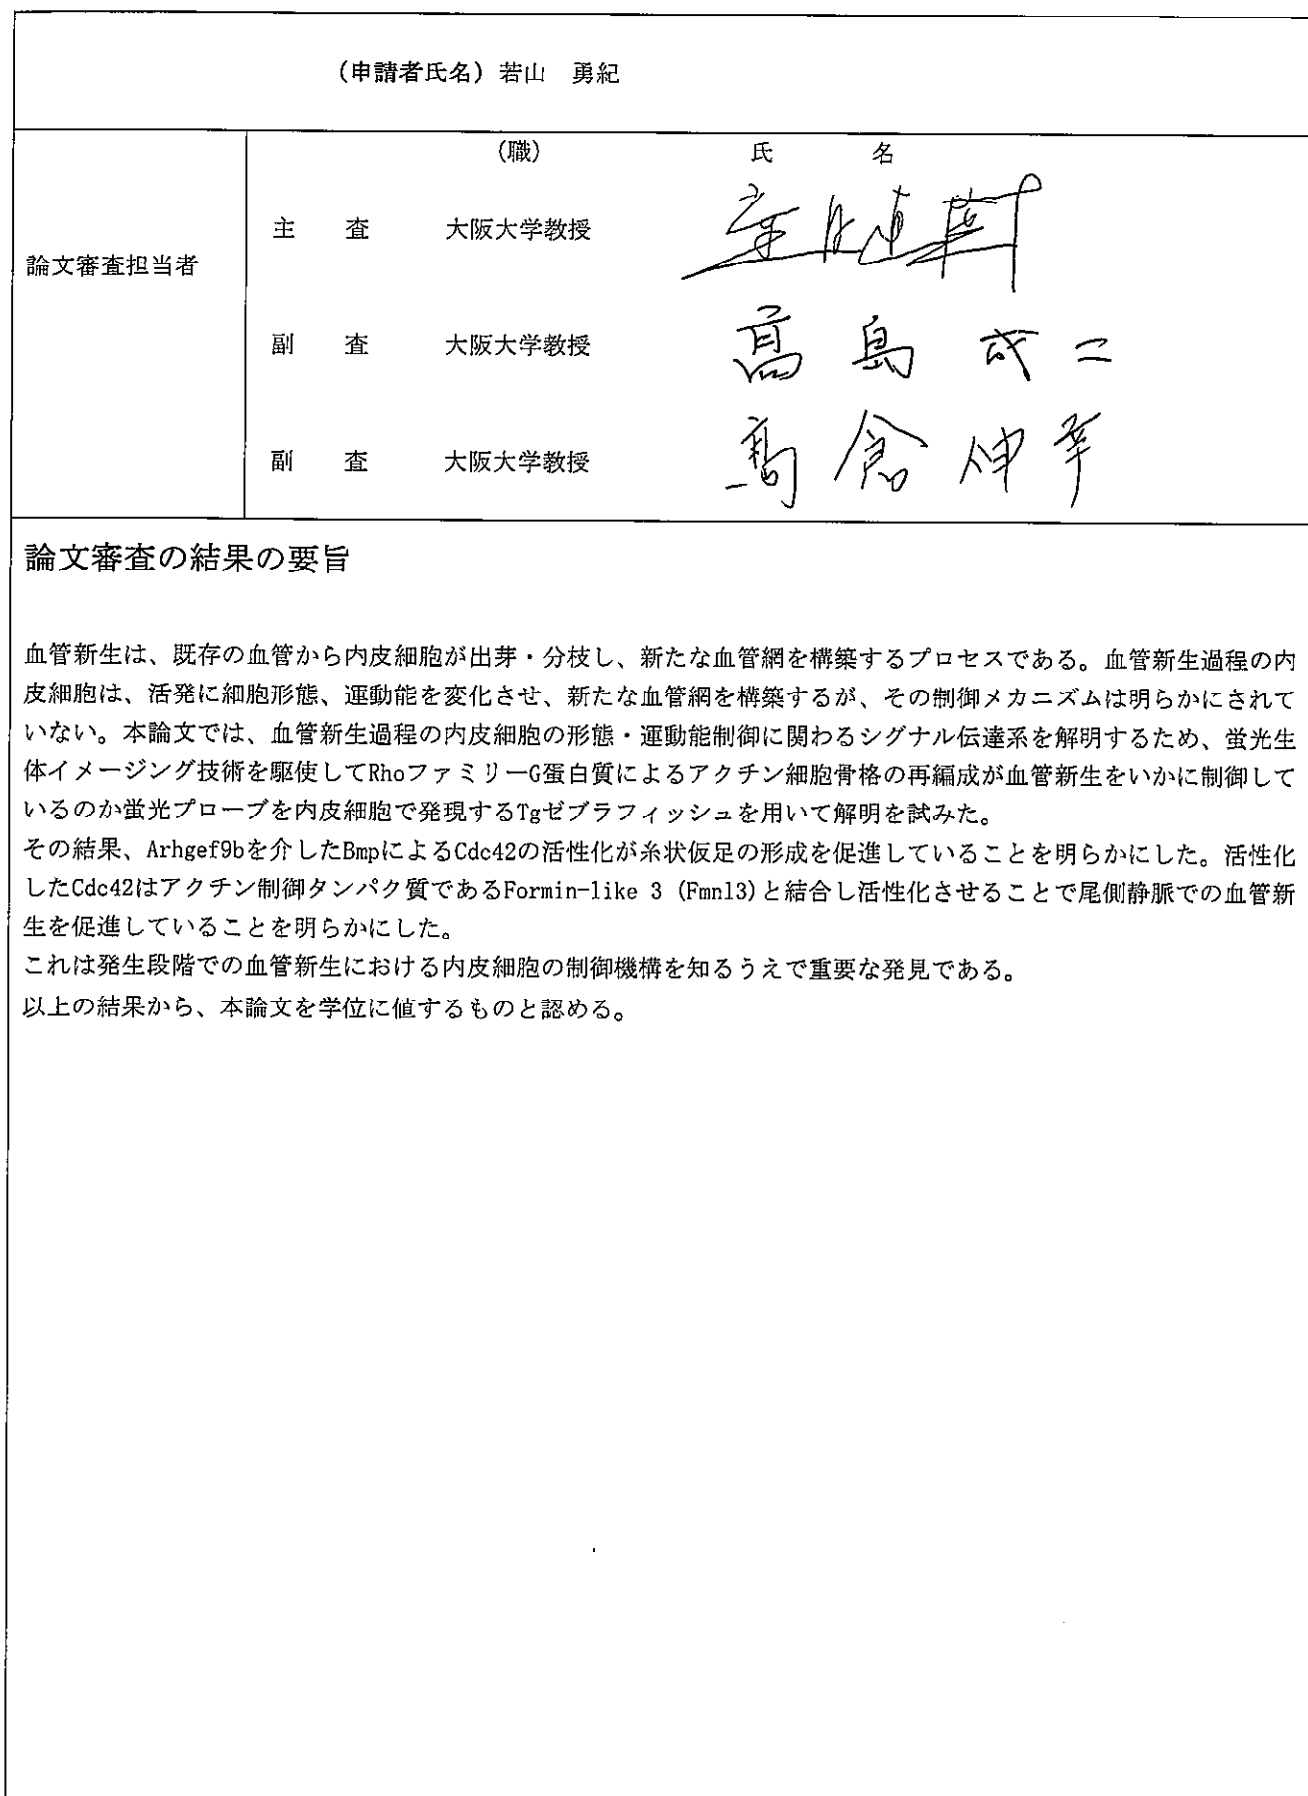 (申請者氏名) 若山 勇紀
(職) 氏 名
主 査 大阪大学教授
論文審査担当者
副 査 大阪大学教授 髙島 成二
副 査 大阪大学教授 髙倉 伸幸
論文審査の結果の要旨
血管新生は、既存の血管から内皮細胞が出芽・分枝し、新たな血管網を構築するプロセスである。血管新生過程の内
皮細胞は、活発に細胞形態、運動能を変化させ、新たな血管網を構築するが、その制御メカニズムは明らかにされて
いない。本論文では、血管新生過程の内皮細胞の形態・運動能制御に関わるシグナル伝達系を解明するため、蛍光生
体イメージング技術を駆使してRhoファミリーG蛋白質によるアクチン細胞骨格の再編成が血管新生をいかに制御して
いるのか蛍光プローブを内皮細胞で発現するTgゼブラフィッシュを用いて解明を試みた。
その結果、Arhgef9bを介したBmpによるCdc42の活性化が糸状仮足の形成を促進していることを明らかにした。活性化
したCdc42はアクチン制御タンパク質であるFormin-like 3 (Fmnl3)と結合し活性化させることで尾側静脈での血管新
生を促進していることを明らかにした。
これは発生段階での血管新生における内皮細胞の制御機構を知るうえで重要な発見である。
以上の結果から、本論文を学位に値するものと認める。